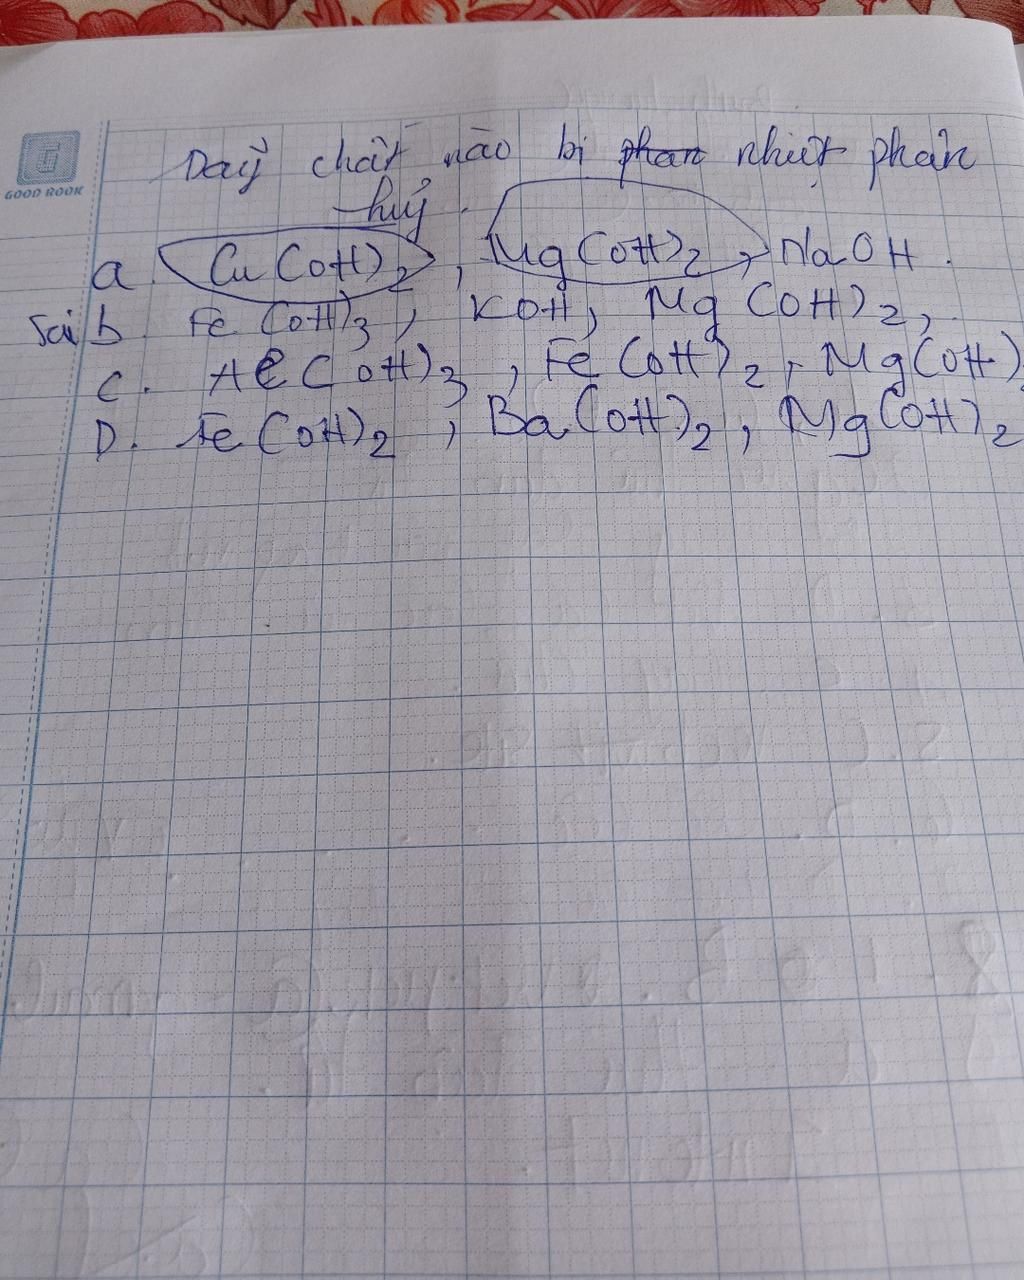 GOOD BOOK
Dãy chất nào bị phan nhiệt phân
huỷ.
a. Cu(OH)2, Mg(OH)2, NaOH.
Sai b. Fe(OH)3, KOH, Mg(OH)2,
C. Al(OH)3, Fe(OH)2, Mg(OH)2
D. Fe(OH)2, Ba(OH)2, Mg(OH)2